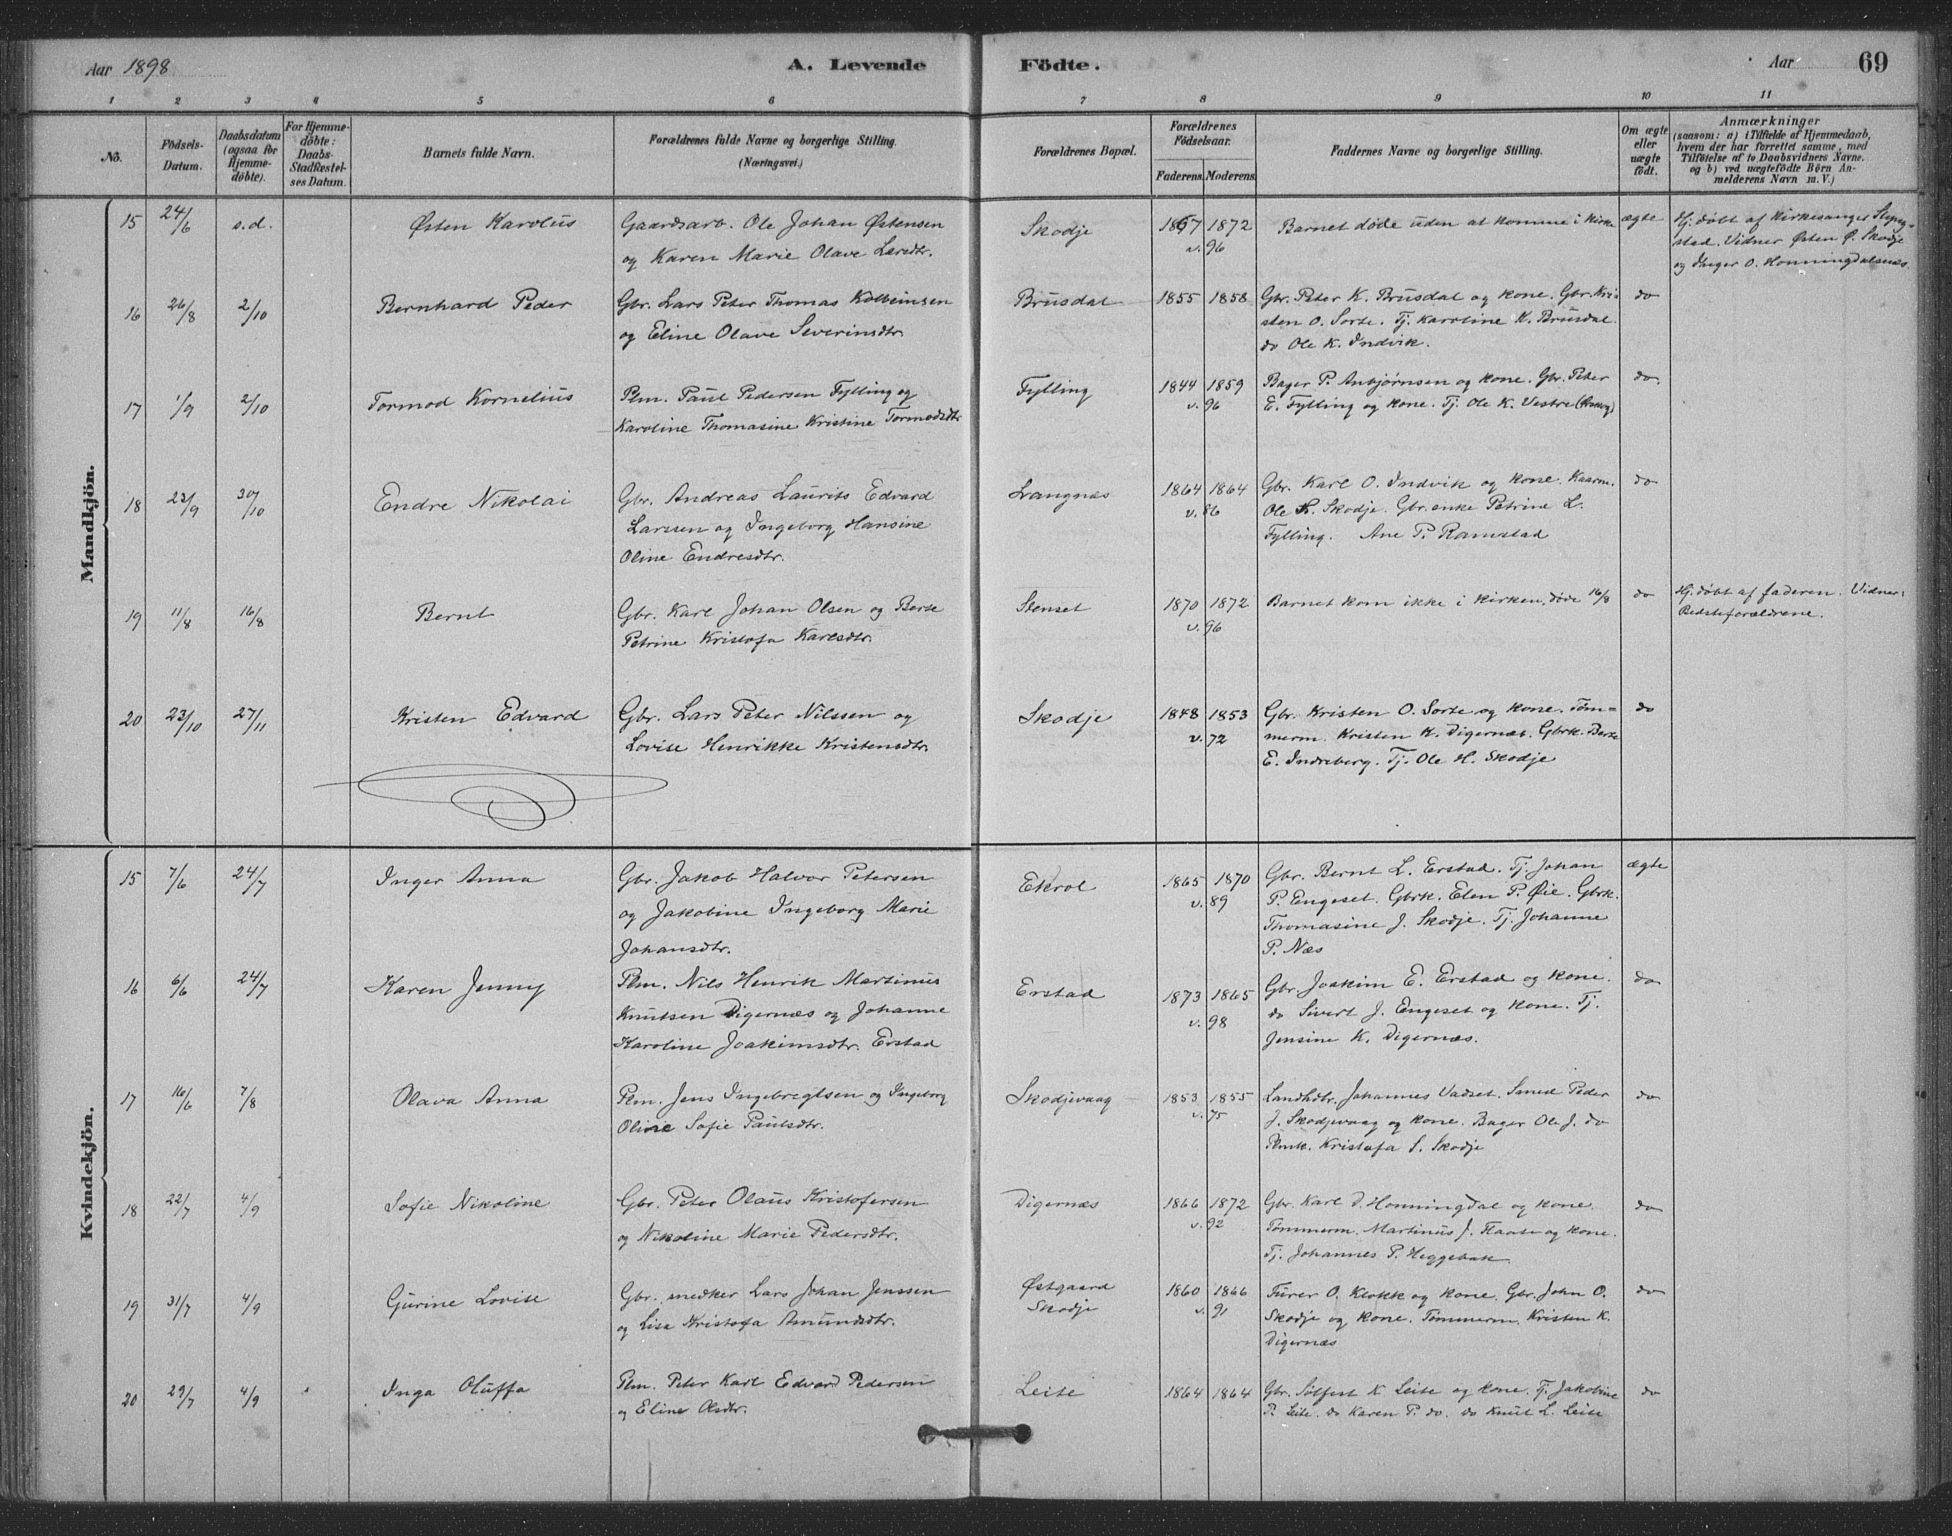 Aar 1898
A. Levende
Födte.
Aar
69
1 2 3 4 5 6 7 8 9 10 11
No.
Födsels-
Datum.
Daabsdatum
(ogsaa for
Hjemme-
döbte).
For Hjemme-
döbte:
Daabs-
Stadfæstel-
ses Datum.
Barnets fulde Navn.
Forældrenes fulde Navne og borgerlige Stilling.
(Næringsvei.)
Forældrenes Bopæl.
Forældrenes
Födselsaar.
Faderens. Moderens.
Faddernes Navne og borgerlige Stilling.
Om ægte
eller
uægte
födt.
Anmærkninger
(saasom: a) i Tilfælde af Hjemmedaab,
hvem der har forrettet samme, med
Tilföielse af to Daabsvidners Navne.
og b) ved uægtefödte Børn An-
melderens Navn m. V.)
Mandkjön.
15 24/6 s.d. Østen Karolus
Gaardsarb. Ole Johan Østensen
og Karen Marie Olave Larsdtr.
Skodje 1867 1872
v. 96
Barnet døde uden at komme i Kirke ægte
Hj. døbt af Kirkesanger
Vidner Østen Ø. Skodje
og Inger O. Honningdalsnes
16 26/8 2/10 Bernhard Peder
Gbr. Lars Peter Thomas Kolbeinsen
og Eline Olave Severinsdtr.
Brusdal 1855 1858
Gbr. Peter K. Brusdal og kone. Gbr. Kri-
sten O. Sorte. Tj. Karoline K. Brusdal
do Ole K. Indvik.
do
17 1/9 2/10 Tormod Kornelius
Plm. Paul Pedersen Fylling og
Karoline Thomasine Kristine Tormodsdtr
Fylling 1844 1859
v. 96
Bager P. Asbjørnsen og kone. Gbr. Peter
E. Fylling og kone. Tj. Ole K. Vestre
do.
18 23/9 30/10 Endre Nikolai
Gbr. Andreas Laurits Edvard
Larssen og Ingeborg Hansine
Oline Endresdtr.
Langnæs 1864 1864
v. 86
Gbr. Karl O. Indvik og kone. Kaarm.
Ole K. Skodje. Gbr. enke Petrine L.
Fylling. Ane P. Ramstad
do
19 11/8 16/8 Bernt
Gbr. Karl Johan Olsen og Berte
Petrine Kristofa Karlsdtr.
Stenset 1870 1872
v. 96
Barnet kom ikke i Kirken, døde 16/8 do
Hj. døbt af faderen. Vidner:
Bedsteforældrene.
20 23/10 27/11 Kristen Edvard
Gbr. Lars Peter Nilssen og
Lovise Henrikke Kristensdtr.
Skodje 1848 1853
v. 72
Gbr. Kristen O. Sorte og kone. Tøm-
merm. Kristen K. Digernæs. Gbrk. Berte
E. Indreberg. Tj. Ole H. Skodje
do
Kvindekjön.
15 7/6 24/7 Inger Anna
Gbr. Jakob Halvor Petersen
og Jakobine Ingeborg Marie
Johansdtr.
Ekrol 1865 1870
v. 89
Gbr. Bernt L. Erstad. Tj. Johan
P. Engeset. Gbrk. Elen P. Øie. Gbrk.
Thomasine J. Skodje. Tj. Johanne
P. Næs
ægte
16 6/6 24/7 Karen Jenny
Plm. Nils Henrik Martinus
Knutsen Digernæs og Johanne
Karoline Joakimsdtr. Erstad
Erstad 1873 1865
v. 98
Gbr. Joakim E. Erstad og kone.
do Sivert J. Engeset og kone. Tj.
Jensine K. Digernæs.
do
17 16/6 7/8 Olava Anna
Plm. Jens Ingebregtsen og Ingeborg
Oline Sofie Paulsdtr.
Skodjevaag 1853 1855
v. 75
Landhdlr. Johannes Vadset. Smed Peder
J. Skodjevaag og kone. Bager Ole J. do
Plmk. Kristofa S. Skodje
do
18 22/7 4/9 Sofie Nikoline
Gbr. Peter Olaus Kristofersen
og Nikoline Marie Pedersdtr.
Digernæs 1866 1872
v. 92
Gbr. Karl D. Honningdal og kone.
Tømmerm. Martinus J. Flaate og kone.
Tj. Johannes P. Heggebak
do
19 31/7 4/9 Gurine Lovise
Gbr. snedker Lars Johan Jenssen
og Lisa Kristofa Amundsdtr.
Østgaard
Skodje
1860 1866
v. 91
Furer O. Klokk og kone. Gbr. John O.
Skodje og kone. Tømmerm. Kristen K.
Digernæs
do
20 29/7 4/9 Inga Oluffa
Plm. Peter Karl Edvard Pedersen
og Eline Olsdtr.
Leite 1864 1864
Gbr. Sølfest K. Leite og kone. Tj. Jakobine
P. Leite. do Karen P. do. do Knut L. Leite
do